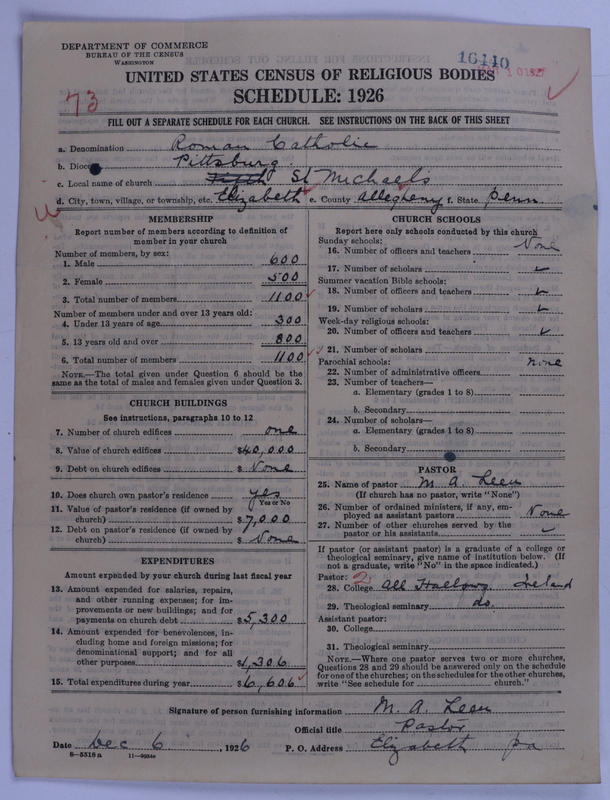 DEPARTMENT OF COMMERCE
BUREAU OF THE CENSUS
WASHINGTON
16440
UNITED STATES CENSUS OF RELIGIOUS BODIES
SCHEDULE: 1926
73
FILL OUT A SEPARATE SCHEDULE FOR EACH CHURCH. SEE INSTRUCTIONS ON THE BACK OF THIS SHEET
a. Denomination Roman Catholic
b. Dioc Pittsburg.
c. Local name of church St Michaels
d. City, town, village, or township, etc. Elizabeth e. County Allegheny f. State Penn.
MEMBERSHIP
Report number of members according to definition of member in your church
Number of members, by sex:
1. Male 600
2. Female 500
3. Total number of members 1100
Number of members under and over 13 years old:
4. Under 13 years of age 300
5. 13 years old and over 800
6. Total number of members 1100
NOTE.—The total given under Question 6 should be
same as the total of males and females given under Question 3.
CHURCH BUILDINGS
See instructions, paragraphs 10 to 12
7. Number of church edifices one
8. Value of church edifices $40,000
9. Debt on church edifices $ None
10. Does church own pastor's residence yes
Yes or No
11. Value of pastor's residence (if owned by
church) $7,000
12. Debt on pastor's residence (if owned by
church) $ None
EXPENDITURES
Amount expended by your church during last fiscal year
13. Amount expended for salaries, repairs,
and other running expenses; for im-
provements or new buildings; and for
payments on church debt $5,300
14. Amount expended for benevolences, in-
cluding home and foreign missions; for
denominational support; and for all
other purposes $1,306
15. Total expenditures during year $6,606
CHURCH SCHOOLS
Report here only schools conducted by this church
Sunday schools: None
16. Number of officers and teachers
17. Number of scholars
Summer vacation Bible schools:
18. Number of officers and teachers
19. Number of scholars
Week-day religious schools:
20. Number of officers and teachers
21. Number of scholars
Parochial schools: none
22. Number of administrative officers
23. Number of teachers—
a. Elementary (grades 1 to 8)
b. Secondary
24. Number of scholars—
a. Elementary (grades 1 to 8)
b. Secondary
PASTOR
25. Name of pastor M A. Leen
(If church has no pastor, write "None")
26. Number of ordained ministers, if any, em-
ployed as assistant pastors None
27. Number of other churches served by the
pastor or his assistants
If pastor (or assistant pastor) is a graduate of a college or
theological seminary, give name of institution below. (If
not a graduate, write "No" in the space indicated.)
Pastor: 2
28. College All Hallows Ireland
29. Theological seminary do.
Assistant pastor:
30. College
31. Theological seminary
NOTE.—Where one pastor serves two or more churches,
Questions 28 and 29 should be answered only on the schedule
for one of the churches; on the schedules for the other churches,
write "See schedule for church."
Signature of person furnishing information M. A. Leen
Official title Pastor
Date Dec 6, 1926 P. O. Address Elizabeth Pa
8—5518 a